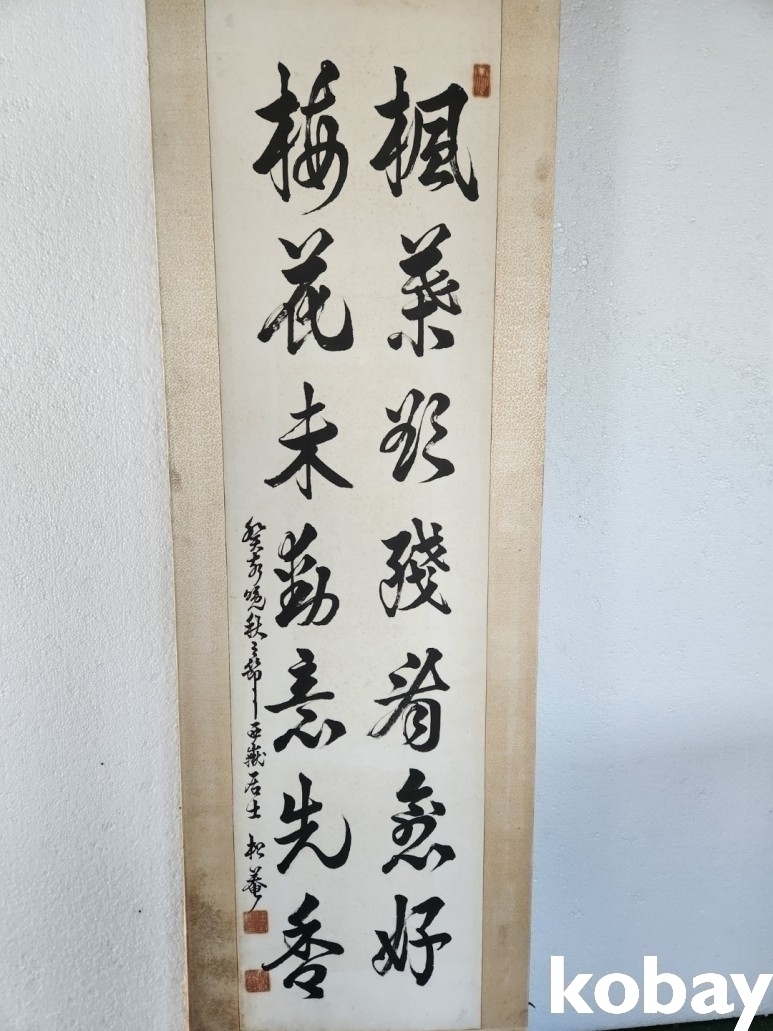 楓葉欲殘看愈好
梅花未動意先香
癸亥晩秋之節 西嶽居士 松菴
kobay